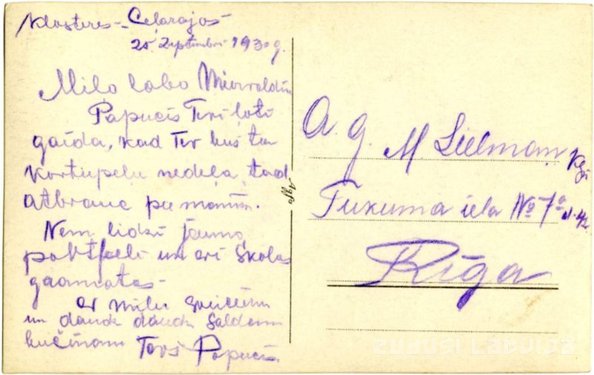 Klosteres - Celarajos
25. Septembri 1930 g.
Milo labo Mirvaldiņ
Papucis Tevi loti
gaida, kad Tev bus ta
kortupelu nedela, tad
atbrauc pie mamm.
Nem lidzi jauno
portfeli un ari Skolas
gramatas -
Ar milu sveicienu
un daudz daudz Saldam
bučinam Tavs Papucis.
Agfa
A. g. M Lielman kgs
Tukuma iela No 7ª dz. 42
Rīgā
ZUDUSI LATVIJA